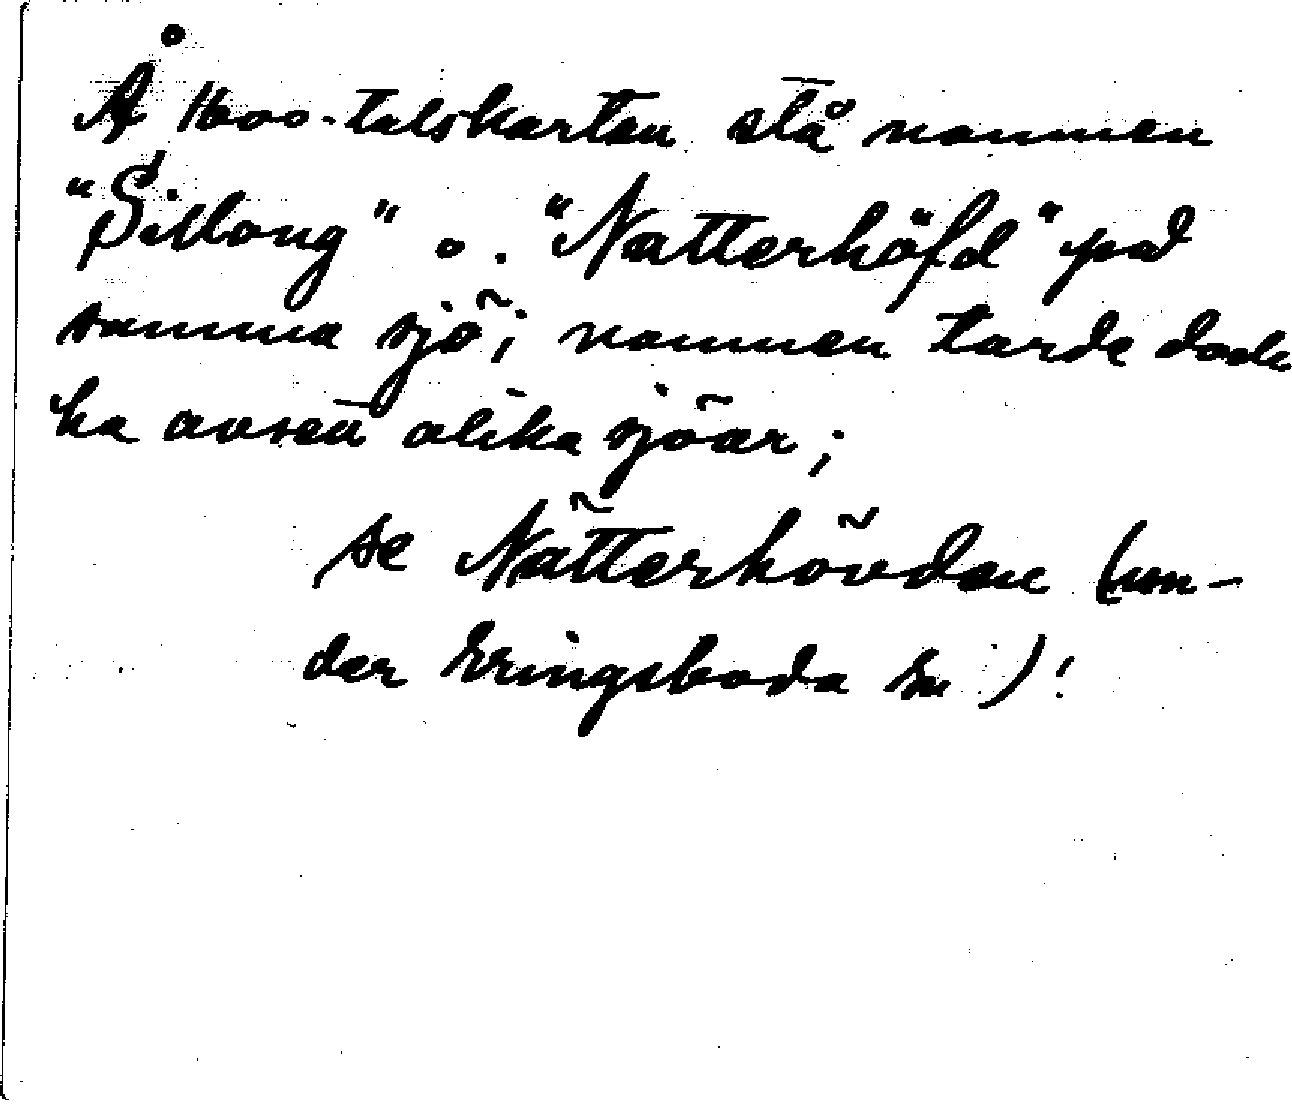 Å 1600-talskartan stå namnen
"Sillong" o. "Natterhöfd" på
samma sjö; namnen torde dock
ha avsett olika sjöar;
se Nätterhövden (un-
der Eringsboda sn)!